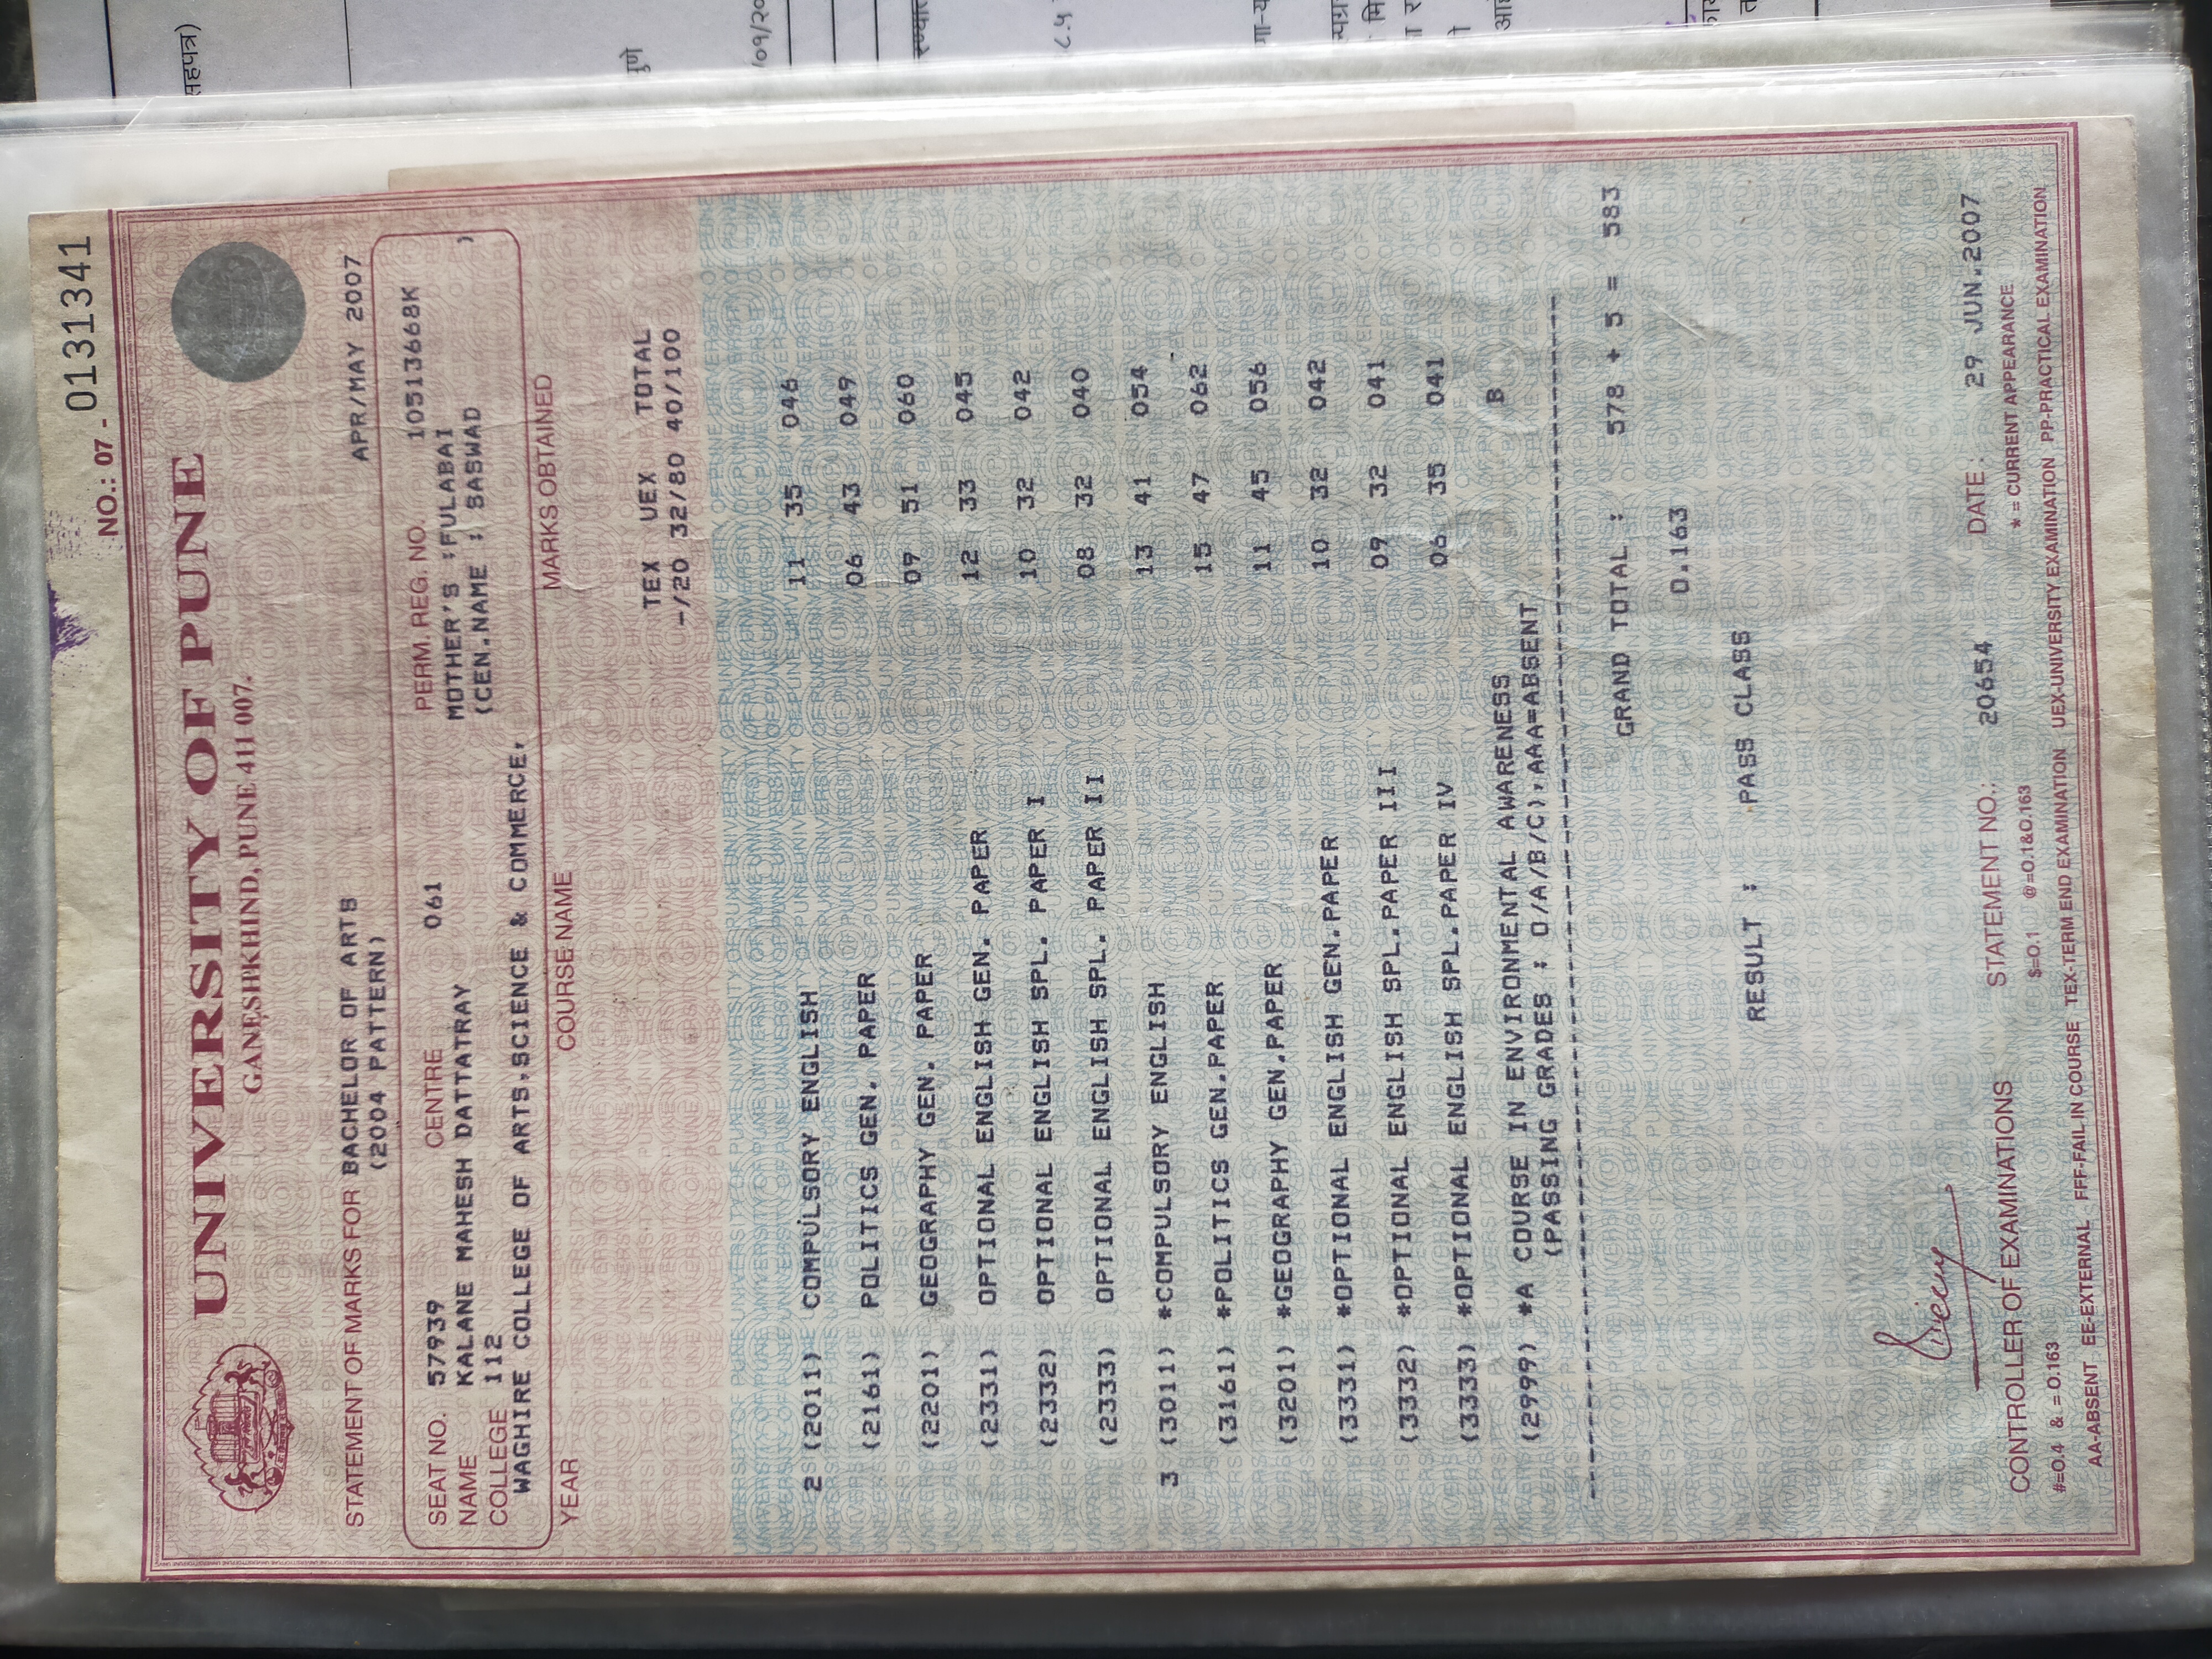 NO.: 07 - 0131341
UNIVERSITY OF PUNE
GANESHKHIND, PUNE 411 007.
STATEMENT OF MARKS FOR BACHELOR OF ARTS APR/MAY 2007
(2004 PATTERN)
SEAT NO. 57939 CENTRE 061 PERM. REG. NO. 10513668K
NAME KALANE MAHESH DATTATRAY MOTHER'S :FULABAI
COLLEGE 112 (CEN.NAME : SASWAD )
WAGHIRE COLLEGE OF ARTS,SCIENCE & COMMERCE,
YEAR COURSE NAME MARKS OBTAINED
TEX UEX TOTAL
-/20 32/80 40/100
2 (2011) COMPULSORY ENGLISH 11 35 046
(2161) POLITICS GEN. PAPER 06 43 049
(2201) GEOGRAPHY GEN. PAPER 09 51 060
(2331) OPTIONAL ENGLISH GEN. PAPER 12 33 045
(2332) OPTIONAL ENGLISH SPL. PAPER I 10 32 042
(2333) OPTIONAL ENGLISH SPL. PAPER II 08 32 040
3 (3011) *COMPULSORY ENGLISH 13 41 054
(3161) *POLITICS GEN.PAPER 15 47 062
(3201) *GEOGRAPHY GEN.PAPER 11 45 056
(3331) *OPTIONAL ENGLISH GEN.PAPER 10 32 042
(3332) *OPTIONAL ENGLISH SPL.PAPER III 09 32 041
(3333) *OPTIONAL ENGLISH SPL.PAPER IV 06 35 041
(2999) *A COURSE IN ENVIRONMENTAL AWARENESS B
(PASSING GRADES : O/A/B/C),AAA=ABSENT
GRAND TOTAL : 578 + 5 = 583
0.163
RESULT : PASS CLASS
CONTROLLER OF EXAMINATIONS STATEMENT NO.: 20654 DATE : 29 JUN.2007
#=O.4 & = O.163 $=O.1 @=O.1&O.163 * = CURRENT APPEARANCE
AA-ABSENT EE-EXTERNAL FFF-FAIL IN COURSE TEX-TERM END EXAMINATION UEX-UNIVERSITY EXAMINATION PP-PRACTICAL EXAMINATION
सहपत्र)
पुणे